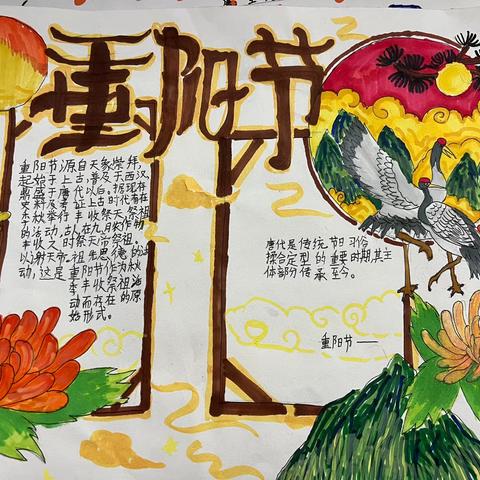 重阳节
重阳节源自天象崇拜，
起始于上古，普及于西汉
鼎盛于唐代以后。据现存
史料及考证上古时代有在
季秋举行丰收祭天、祭祖
的活动，古人在九月农作物
丰收之时祭天帝、祭祖，
以谢天帝、祖先恩德的活
动，这是重阳节作为秋
季丰收祭祀活
动而存在的原
始形式。
唐代是传统节日习俗
揉合定型的重要时期，其主
体部分传承至今。
重阳节——